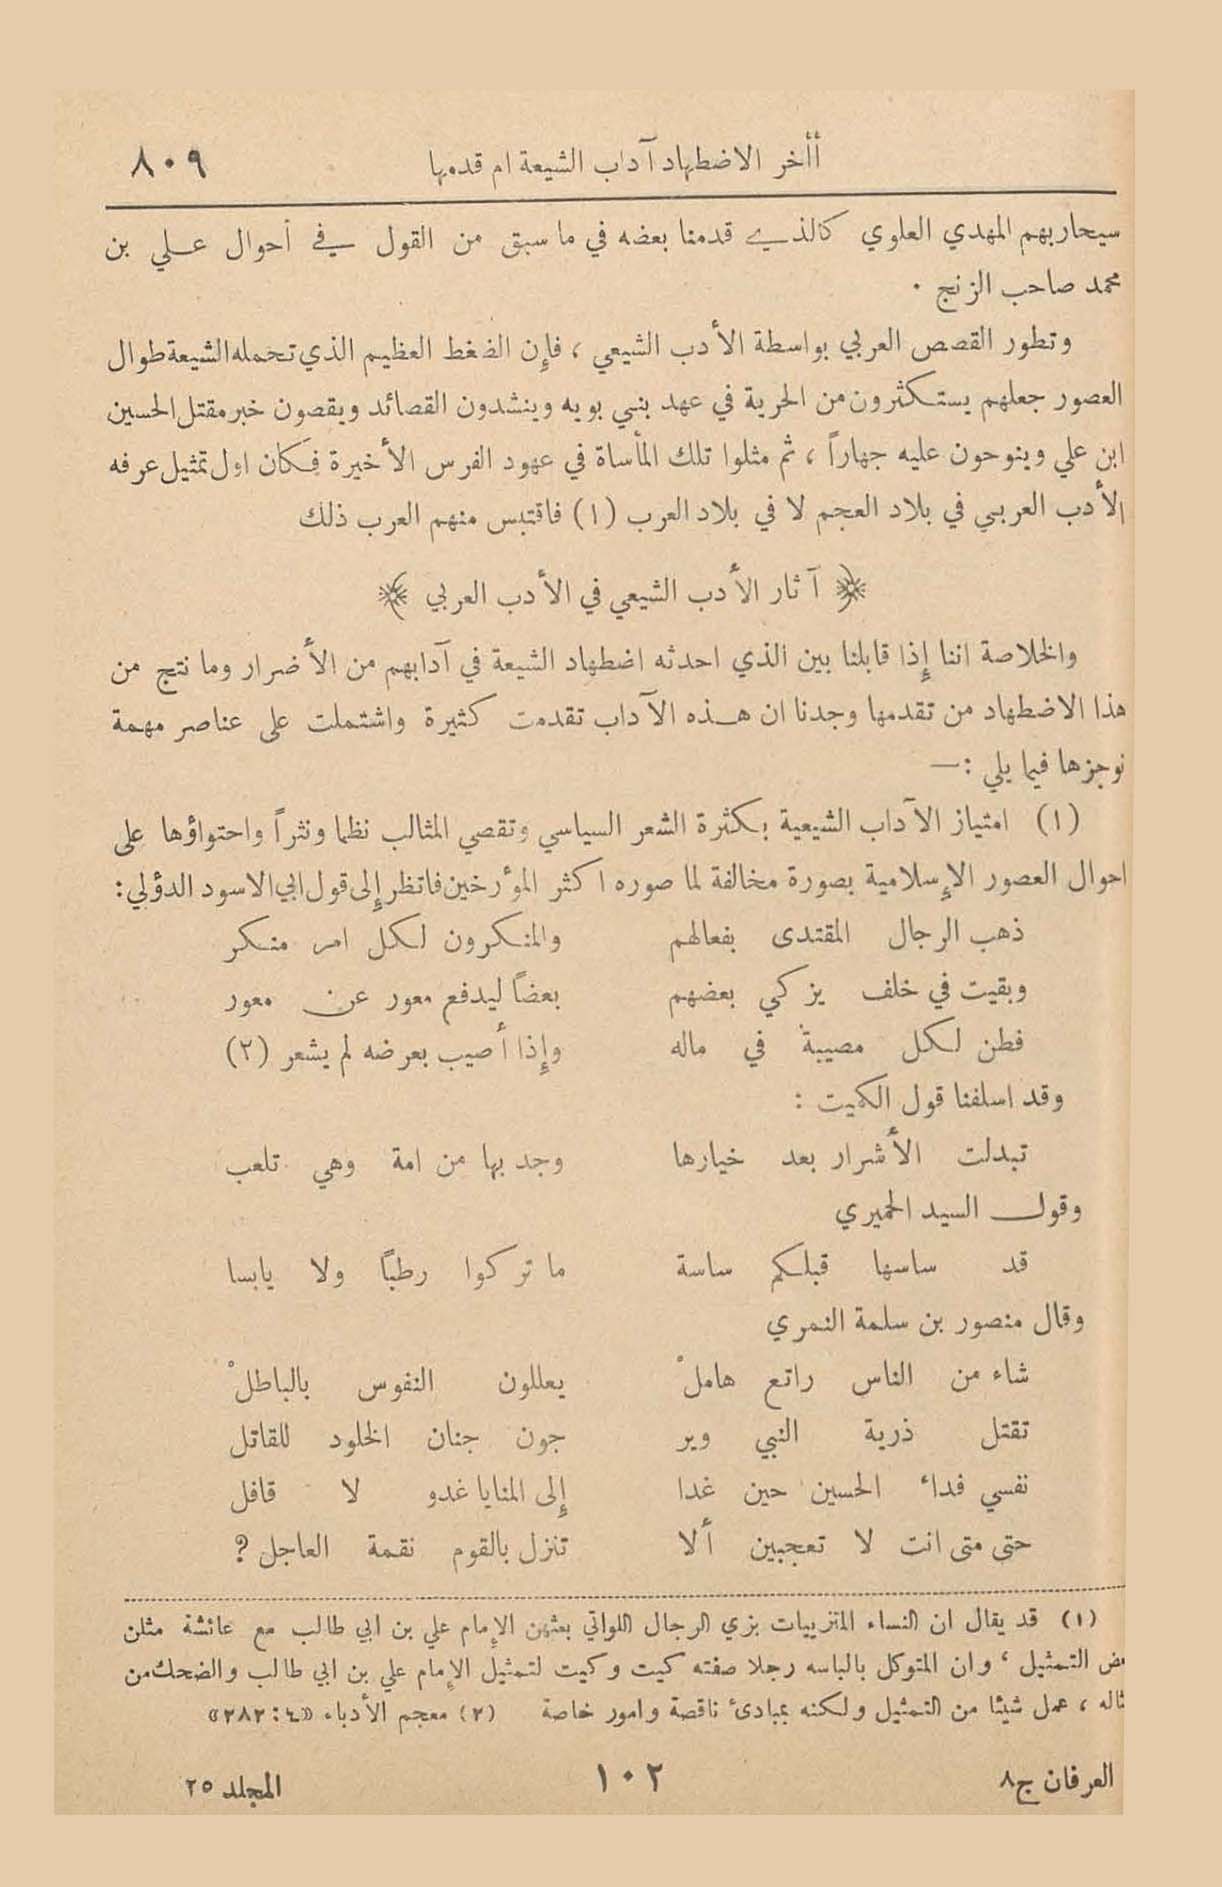 أأخر الاضطهاد آداب الشيعة ام قدمها ٨٠٩
سيحاربهم المهدي العلوي كالذي قدمنا بعضه في ما سبق من القول في أحوال علي بن
محمد صاحب الزنج .
وتطور القصص العربي بواسطة الأدب الشيعي ، فإن الضغط العظيم الذي تحمله الشيعة طوال
العصور جعلهم يستكثرون من الحرية في عهد بني بويه وينشدون القصائد ويقصون خبر مقتل الحسين
ابن علي وينوحون عليه جهاراً ، ثم مثلوا تلك المأساة في عهود الفرس الأخيرة فكان اول تمثيل عرفه
الأدب العربي في بلاد العجم لا في بلاد العرب (١) فاقتبس منهم العرب ذلك
﴿ آثار الأدب الشيعي في الأدب العربي ﴾
والخلاصة اننا إذا قابلنا بين الذي احدثه اضطهاد الشيعة في آدابهم من الأضرار وما نتج من
هذا الاضطهاد من تقدمها وجدنا ان هذه الآداب تقدمت كثيرة واشتملت على عناصر مهمة
نوجزها فيما يلي :—
(١) امتياز الآداب الشيعية بكثرة الشعر السياسي وتقصي المثالب نظما ونثراً واحتواؤها على
احوال العصور الإسلامية بصورة مخالفة لما صوره اكثر المؤرخين فانظر إلى قول ابي الاسود الدؤلي :
ذهب الرجال المقتدى بفعالهم والمنكرون لكل امر منكر
وبقيت في خلف يزكي بعضهم بعضاً ليدفع معور عن معور
فطن لكل مصيبة في ماله وإذا أصيب بعرضه لم يشعر (٢)
وقد اسلفنا قول الكميت :
تبدلت الأشرار بعد خيارها وجد بها من امة وهي تلعب
وقول السيد الحميري
قد ساسها قبلكم ساسة ما تركوا رطبًا ولا يابسا
وقال منصور بن سلمة النمري
شاء من الناس راتع هاملْ يعللون النفوس بالباطلْ
تقتل ذرية النبي وير جون جنان الخلود للقاتل
نفسي فداء الحسين حين غدا إلى المنايا غدو لا قافل
حتى متى انت لا تعجبين ألا تنزل بالقوم نقمة العاجل ?
(١) قد يقال ان النساء المتزييات بزي الرجال اللواتي بعثهن الإمام علي بن ابي طالب مع عائشة مثلن
بعض التمثيل ، وان المتوكل بالباسه رجلا صفته كيت وكيت لتمثيل الإمام علي بن ابي طالب والضحك من
مثاله ، عمل شيئا من التمثيل ولكنه بمبادئ ناقصة وامور خاصة (٢) معجم الأدباء «٤:٢٨٢»
العرفان ج٨ ١٠٢ المجلد ٢٥